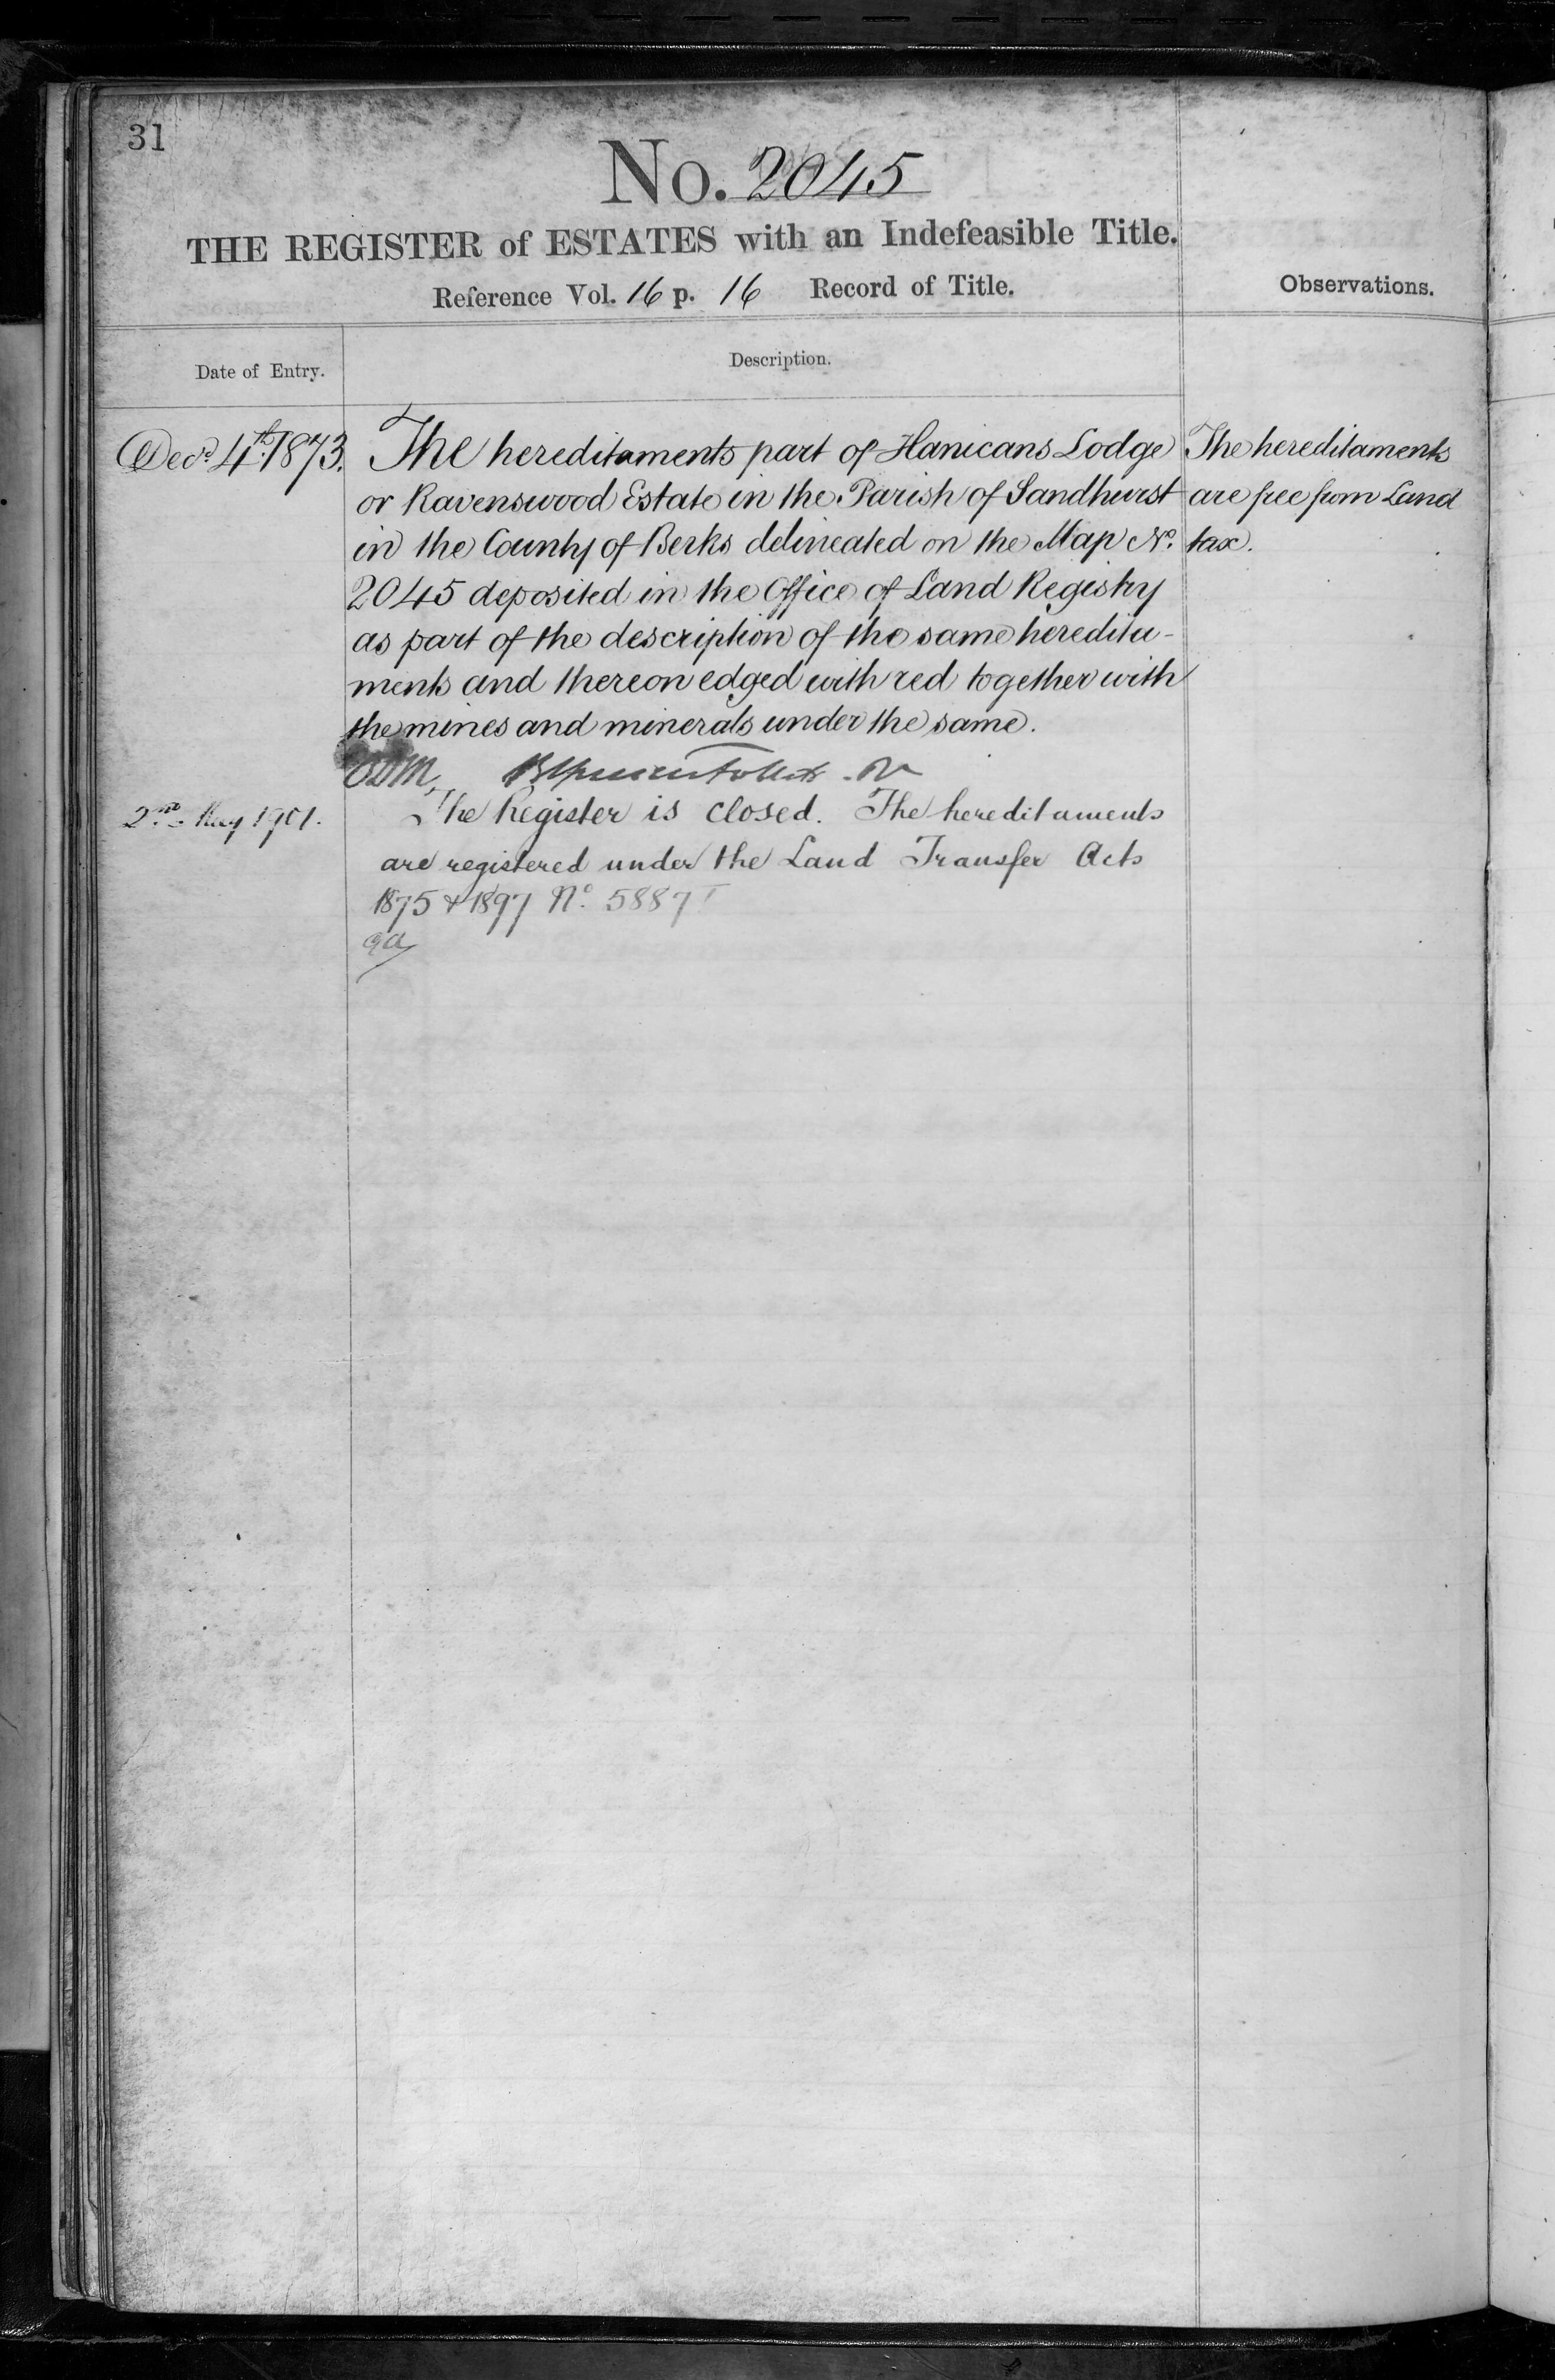 31
No. 2045
THE REGISTER of ESTATES with an Indefeasible Title.
Reference Vol. 16 p. 16 Record of Title.
Observations.
Date of Entry.
Description.
Decr 4th 1873.
The hereditaments part of Hanicans Lodge
or Ravenswood Estate in the Parish of Sandhurst
in the County of Berks delineated on the Map No.
2045 deposited in the Office of Land Registry
as part of the description of the same heredita-
ments and thereon edged with red together with
the mines and minerals under the same.
The hereditaments
are free from Land
tax.
2nd May 1901.
The Register is closed. The hereditaments
are registered under the Land Transfer Acts
1875 & 1897 No. 5887